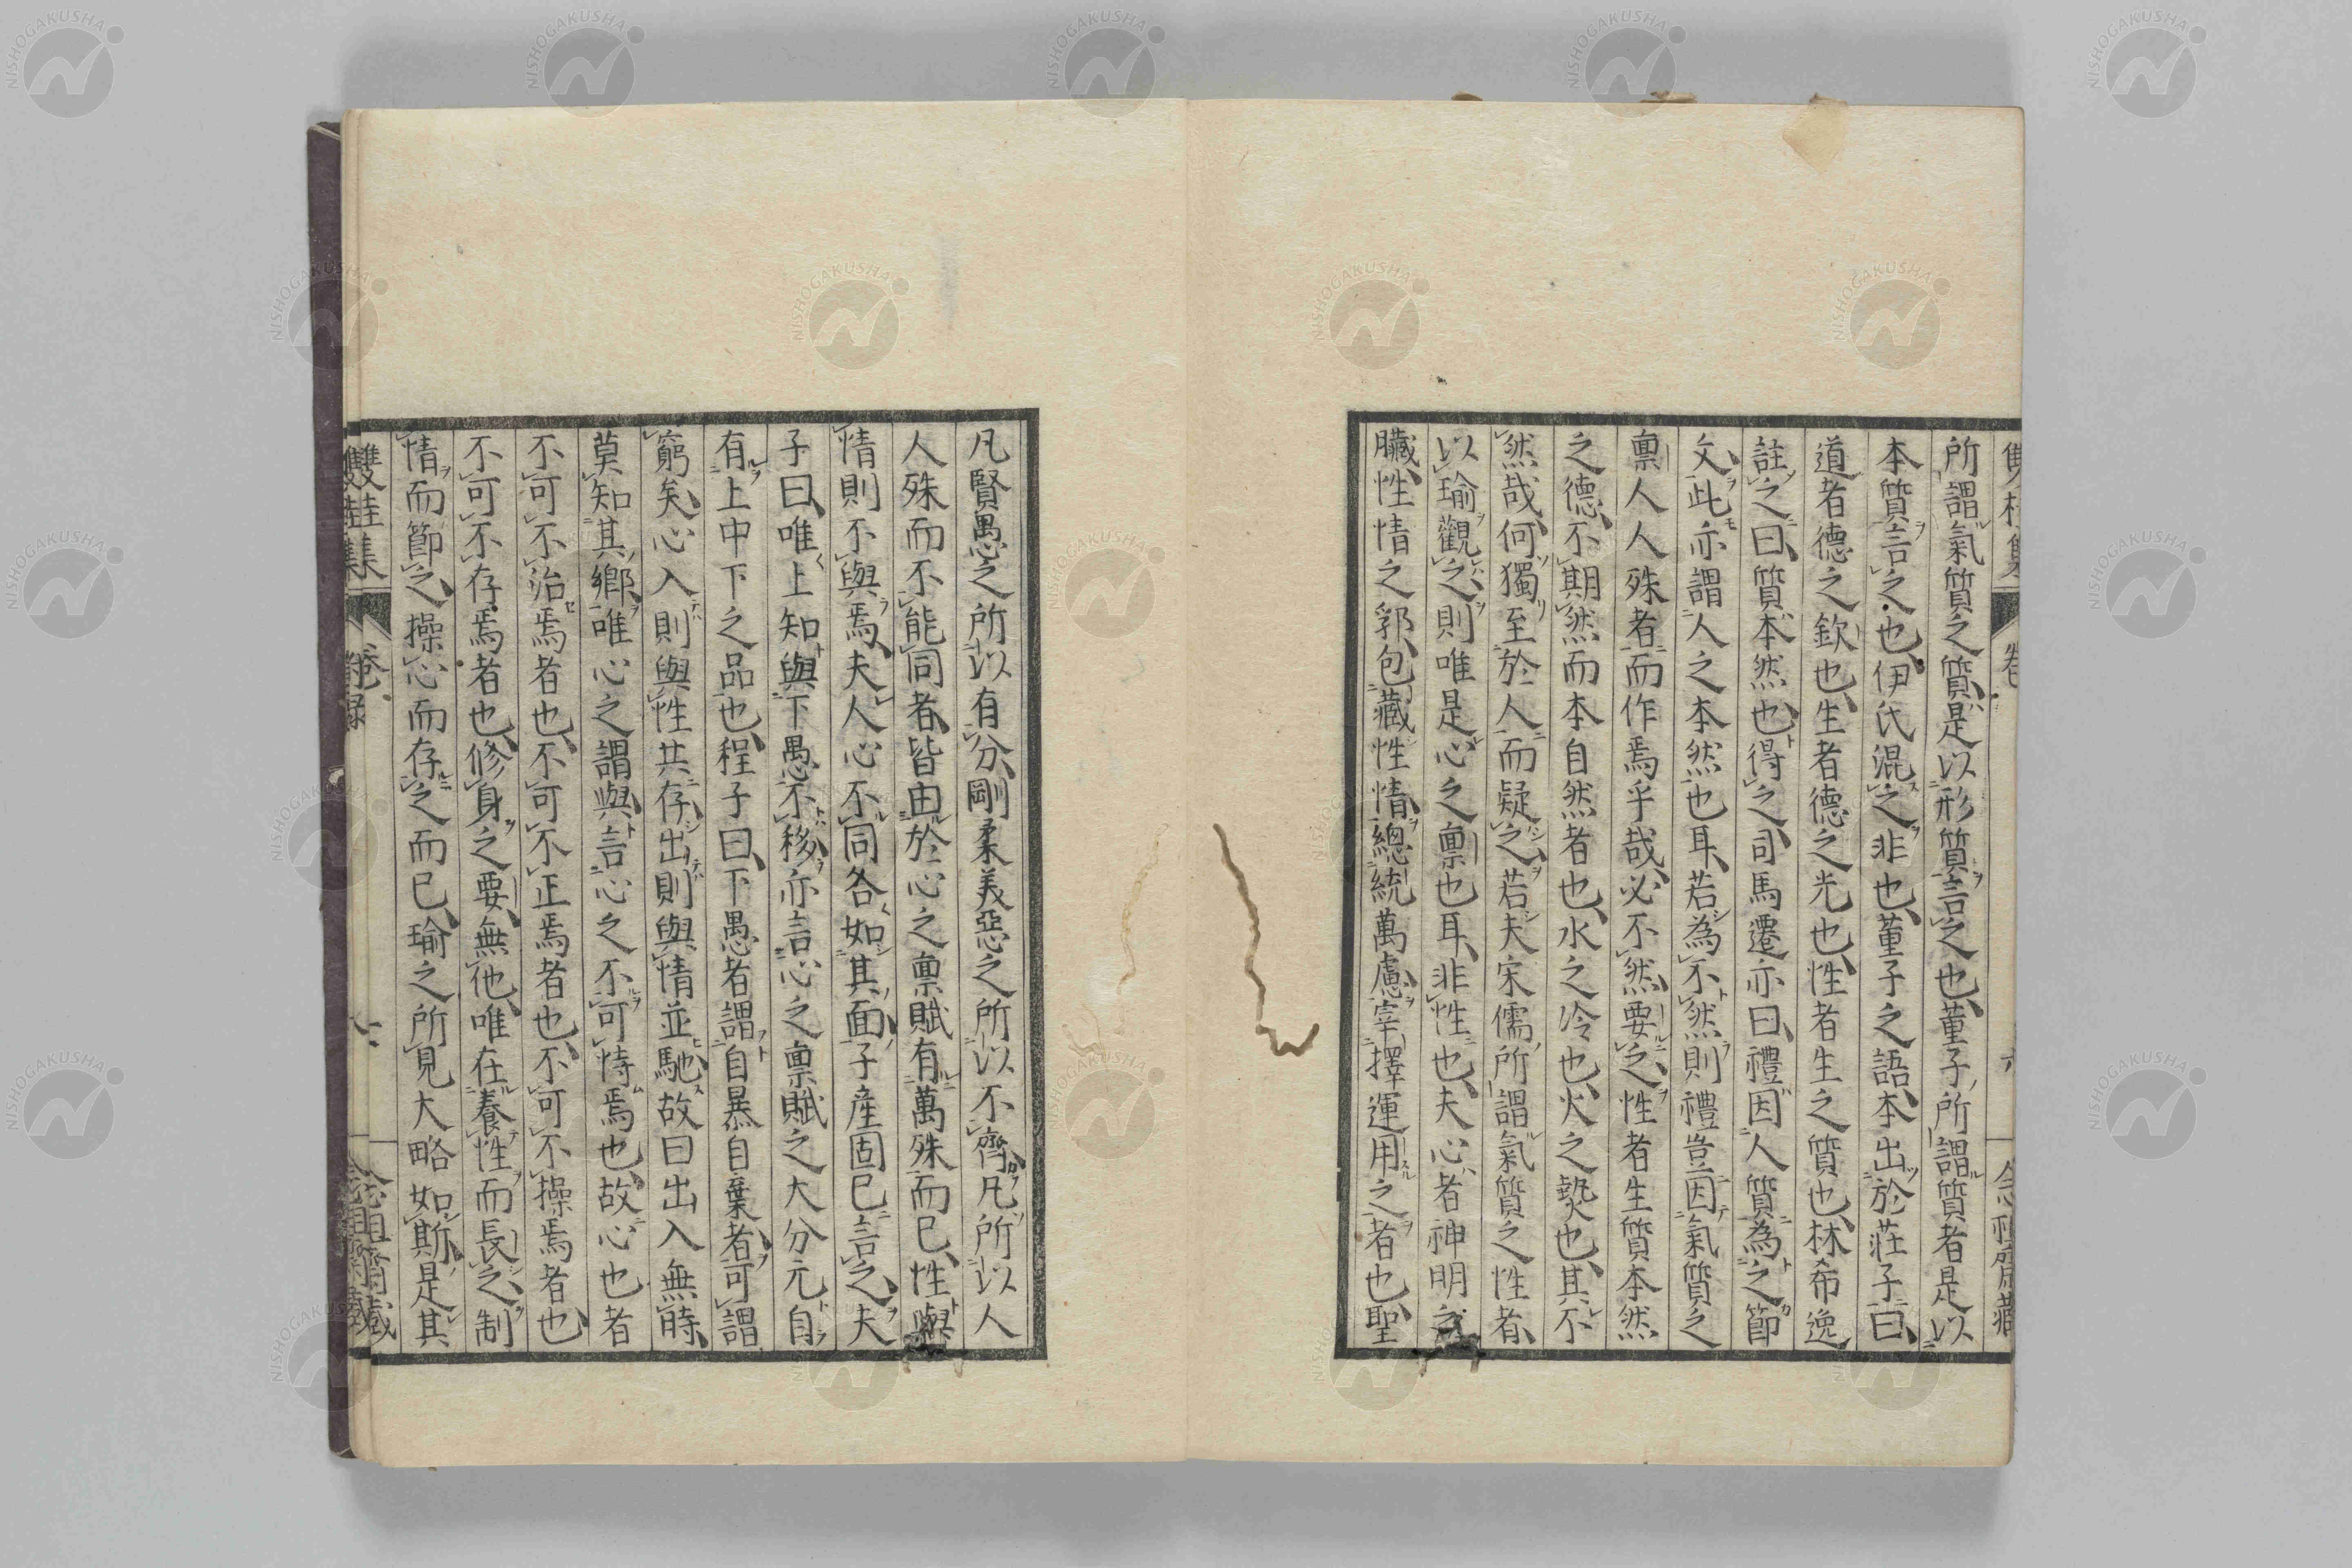 所謂氣質之質、是以形質言之也、董子所謂質者是以
本質言之也、伊氏混之非也、董子之語、本出於莊子曰、
道者德之欽也、生者德之光也、性者生之質也、林希逸
註之曰、質本然也、得之司馬遷亦曰、禮因人質為之節
文、此亦謂人之本然也耳、若為不然則禮豈因氣質之
稟人人殊者而作焉乎哉、必不然、要之、性者生質本然
之德、不期然而本自然者也、水之冷也、火之熱也、其不
然哉、何獨至於人而疑之、若夫宋儒所謂氣質之性者、
以瑜觀之、則唯是心之稟也耳、非性也、夫心者神明之
臟、性情之郛、包藏性情、總統萬慮、宰擇運用之者也、聖
凡賢愚之所以有分、剛柔美惡之所以不齊、凡所以人
人殊而不能同者、皆由於心之稟賦有萬殊而已、性與
情則不與焉、夫人心不同各如其面、子產固已言之、夫
子曰、唯上知與下愚不移、亦言心之稟賦之大分元自
有上中下之品也、程子曰、下愚者謂自暴自棄者、可謂
窮矣、心入則與性共存、出則與情並馳、故曰出入無時、
莫知其鄉、唯心之謂與、言心之不可恃焉也、故心也者
不可不治焉者也、不可不正焉者也、不可不操焉者也
不可不存焉者也、修身之要、無他、唯在養性而長之、制
情而節之、操心而存之而已、瑜之所見大略如斯、是其
雙桂集